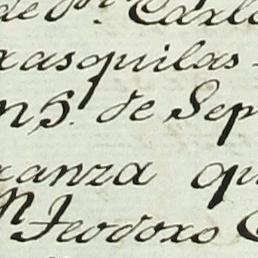 de Dn. Carlo
rasquilas
n 5. de Sep
ranza qu
n Teodoro